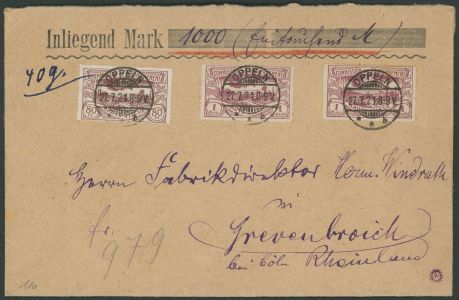 Inliegend Mark 1000 (Eintausend M)
40 g.
OPPELN OPPELN OPPELN
27.7.21.8-9V. 27.7.21.8-9V. 27.7.21.8-9V.
80 80 1 1 1 1
Herrn Fabrikdirektor Herm. Windrath
in
Grevenbroich
bei Cöln Rheinland
fr.
979